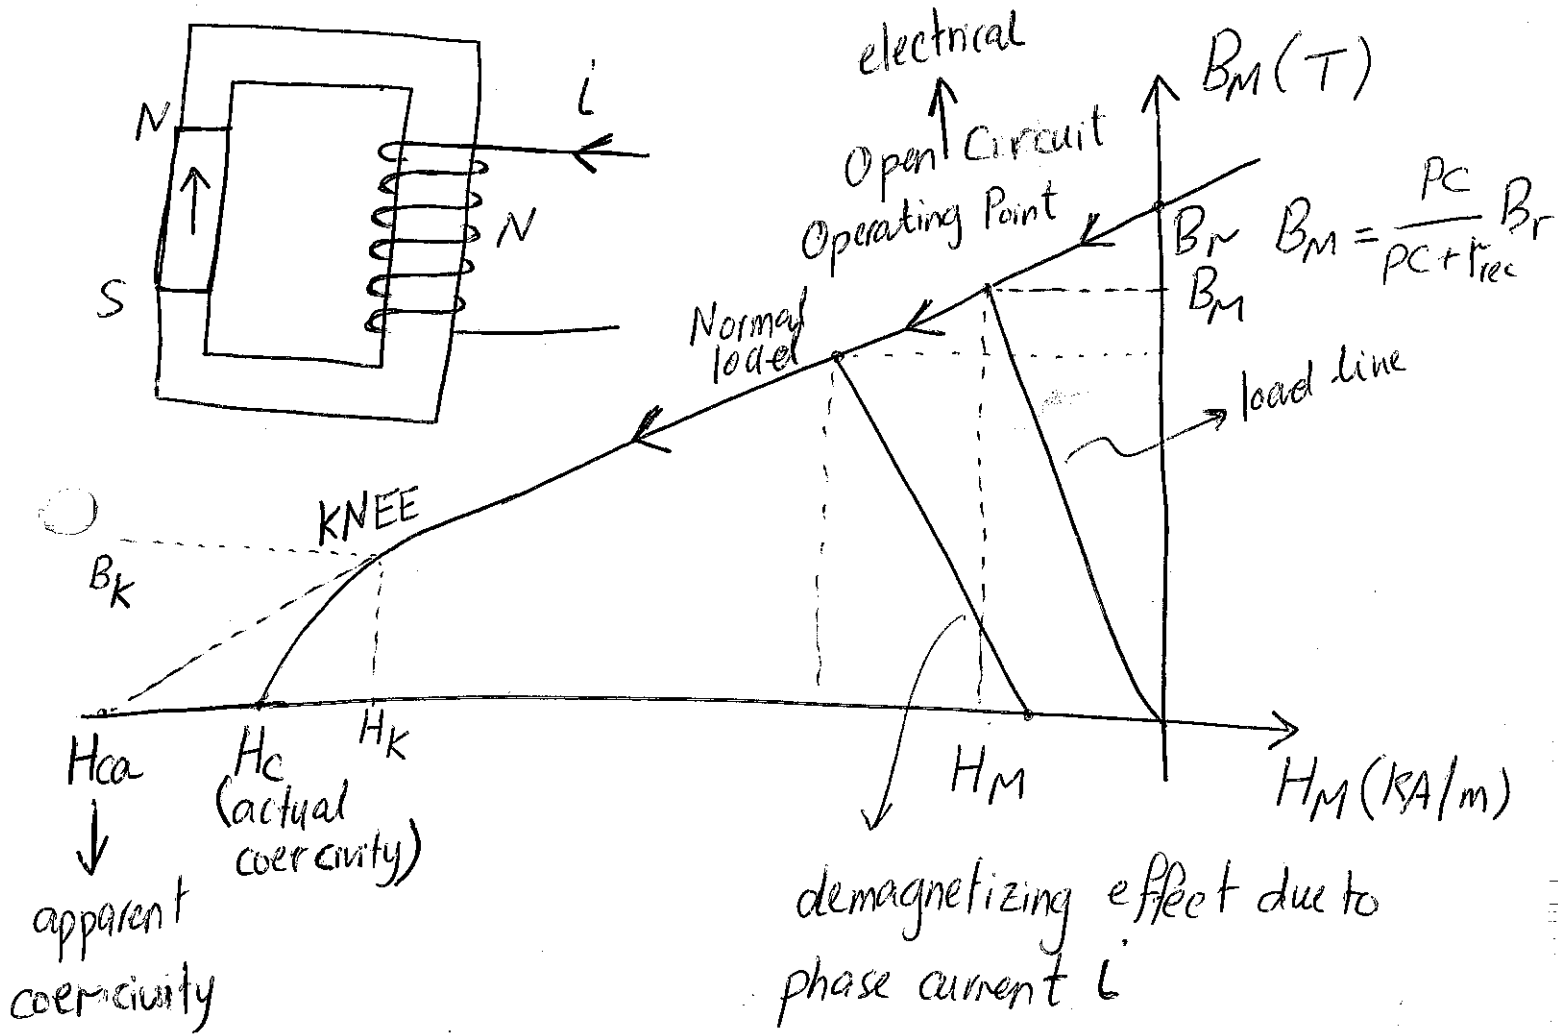 N
S
i
N
electrical
Open Circuit
Operating Point
B_M (T)
B_r
B_M = PC / (PC + μ_rec) B_r
B_M
Normal
load
load line
KNEE
B_K
H_ca
H_c
(actual
coercivity)
H_K
H_M
H_M (kA/m)
apparent
coercivity
demagnetizing effect due to
phase current i